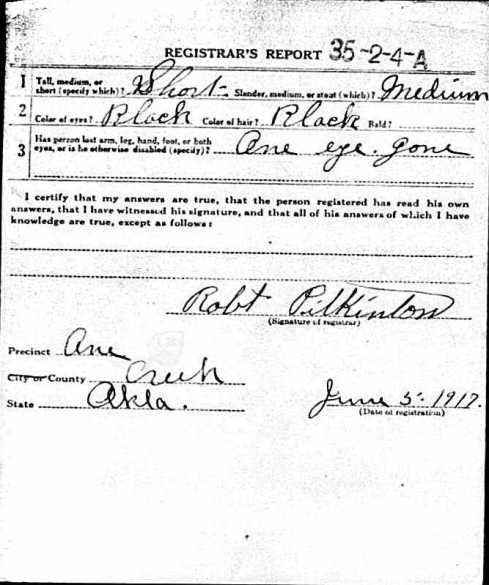 REGISTRAR'S REPORT 35-2-4-A
1 Tall, medium, or short (specify which)? Short Slender, medium, or stout (which)? Medium
2 Color of eyes? Black Color of hair? Black Bald?
3 Has person lost arm, leg, hand, foot, or both eyes, or is he otherwise disabled (specify)? One eye gone
I certify that my answers are true, that the person registered has read his own
answers, that I have witnessed his signature, and that all of his answers of which I have
knowledge are true, except as follows:
Robt Pilkinton
(Signature of registrar)
Precinct One
City or County Creek
State Okla.
June 5 1917.
(Date of registration)